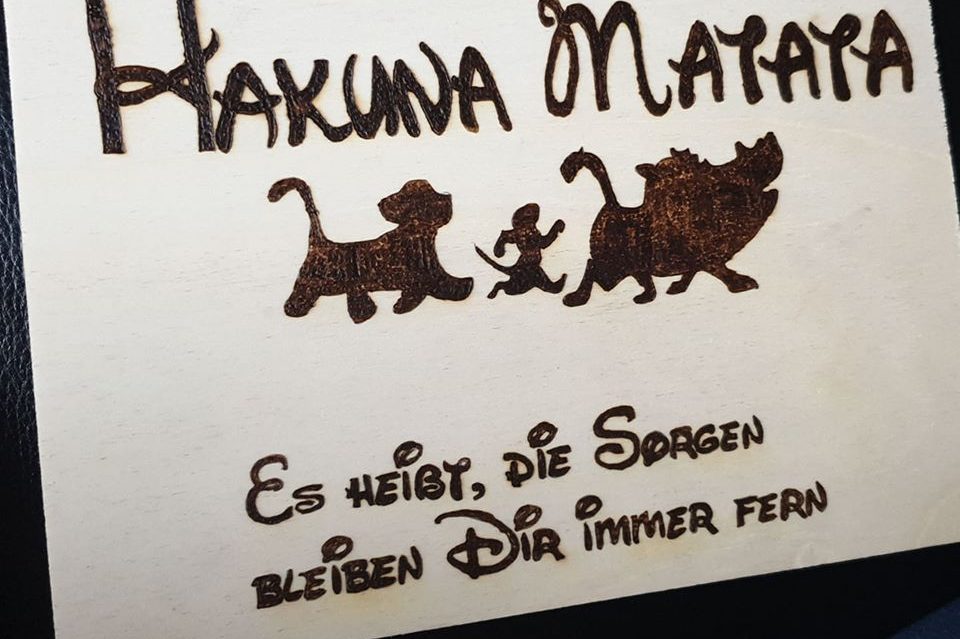 Hakuna Matata
Es heißt, die Sorgen
bleiben Dir immer fern